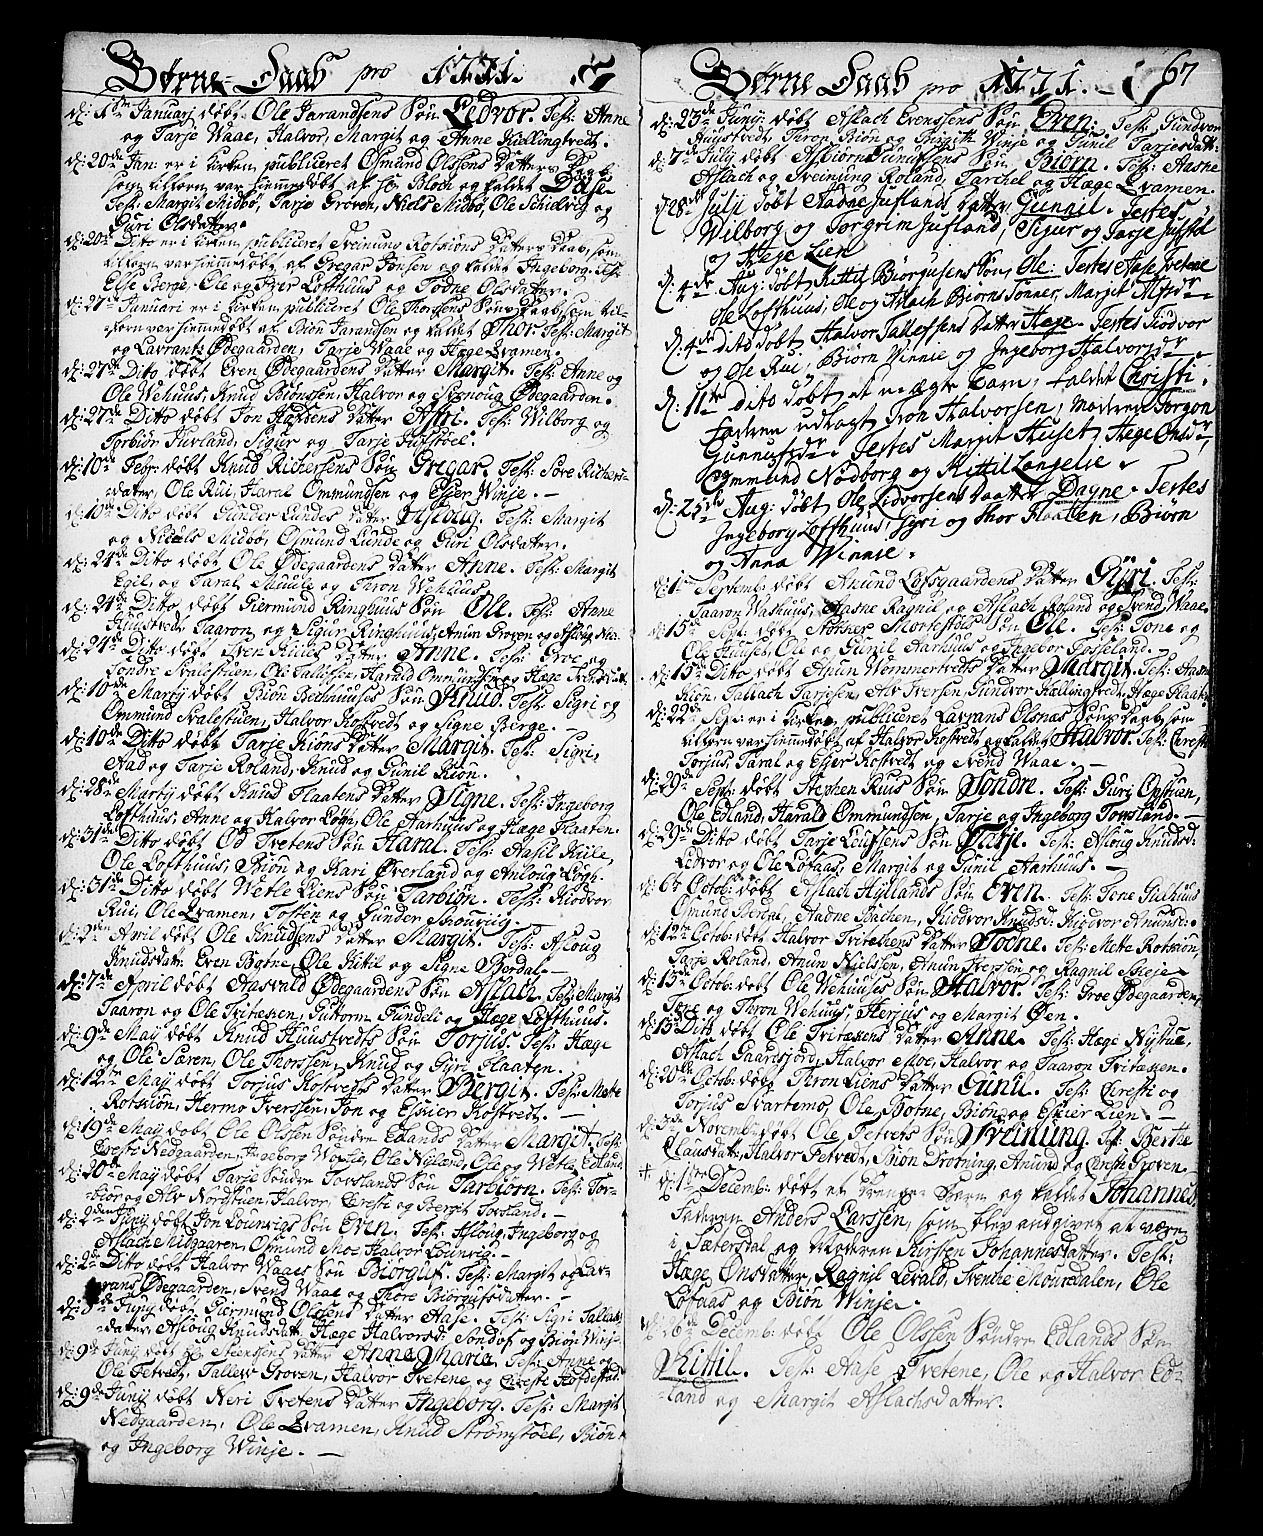 Børne-Daab pro 1771.
d: 1ste Januarj døbt Ole Jarandsens Søn Ledvor. Test: Anne
og Tarje Waae, Halvor, Margit og Anne Kiellingtvedt.
d: 20de Jan: er i kirken publiceret Osmund Olssens Datters Daab
som tilforn var hiemmedøbt af Hr Bloch og kaldet
Test: Margit Midbø, Tarje Groven, Niels Midbø, Ole og
Guri Olsdatter.
d: 20de Dito er i kirken publiceret Sveinung Rotkiøns Datters Daab, som
tilforn var hiemmedøbt af Gregar Jonsen og kaldet Ingeborg. Test:
Else Berge, Ole og Lofthuus og Todne Olsdatter.
d: 27de Januari er i kirken publiceret Ole Thorsens Søns Daab, som til-
forn var hiemmedøbt af Biøn Jarandsen og kaldet Thor. Test: Margit
og Lavrantz Ødegaarden, Tarje Waae og Hæge Evamen.
d: 27de Dito døbt Even Ødegaardens Datter Margit. Test: Anne og
Ole Wehuus, Knud Biønssen, Halvor og Ødegaarden.
d: 27de Dito døbt Jon Datter Asgri. Test: Wilborg og
Torbiør Juvland, Sigur og Tarje
d: 10de Febr: døbt Knud Richersens Søn Gregar. Test: Søre Richers-
datter, Ole Rui, Haral Ommundsen og Esjer Winje.
d: 10de Dito døbt Gunder Lundes Datter Aslaug. Test: Margit
og Niels Midbø, Osmund Lunde og Guri Olsdatter.
d: 24de Dito døbt Ole Ødegaardens Datter Anne. Test: Margit
Egil, og Taral og Thron Wehuus.
d: 24de Dito, døbt Giermund Ringhuus Søn Ole. Test: Anne
Huustvedt, Taaron og Sigur Ringhuus, Anun Groven og Aslaug
d: 24de Dito døbt Iven Kiles Datter Anne. Test: Groe og
Sondre Svalestuen, Ole Tallefsen, Harald Ommundsen og Hæge
d: 10de Marty døbt Biøn Bechhuuses Søn Knud. Test: Sigri og
Ommund Svalestuen, Halvor Kostvedt og Signe Berge.
d: 10de Ditto døbt Tarje Kiøns Datter Margit. Test: Sigri,
Aad og Tarje Roland, Knud og Gunil Kiøn.
d: 28de Marty døbt Knud Flaatens Datter Signe. Test: Ingeborg
Lofthuus, Anne og Halvor Løgn, Ole Aarhuus og Hæge Flaaten.
d: 31de Ditto døbt Od Tvetens Søn Haral. Test: Aasil Kile,
Ole Lofthuus, Biøn og Kari Øverland og Anloug Løgn.
d: 31de Ditto døbt Wetle Liens Søn Tarbiøn. Test: Kiodvor
Rui, Ole Evamen, Tosten og Gunder
d: 2den April døbt Ole Knudsens Datter Margit. Test: Asloug
Knudsdatr. Even Bøtne, Ole Kitil og Signe Bordal.
d: 7de April døbt Aasvald Ødegaardens Søn Aslach. Test: Margit
Taaron og Ole Tvitæssen, Gutorm Gundeli og Hæge Lofthuus.
d: 9de Maij døbt Knud Huustvedts Søn Torjus. Test: Hæge
og Ole Saren, Ole Thorssen, Knud og Gyri Flaaten.
d: 12te Maij døbt Torjus Kostvedts Datter Bergit. Test: Mete
Rotkiøn, Hermo Iverssen, Jon og Eskier Kostvedt.
d: 19de Maij døbt Ole Olssen Søndre Edlands Datter Margit. Test:
Cresti Nedgaarden, Ingeborg, Ole Nyland, Ole og Wetle Edland
d: 20de Maij døbt Tarje Søndre Torslands Søn Tarbiørn. Test: Tor-
biør og Alv Nordstuen, Halvor, Cresti og Bergit Torsland.
d: 2den Junij døbt Jon Lounvigs Søn Even. Test: Asloug, Ingeborg og
Aslach Midgaaren, Osmund Moe, Halvor Lounvig.
d: 2de Ditto døbt Halvor Waaes Søn Biørguf. Test: Margit og Lav-
rans Ødegaarden, Svend Waae og Thore Biørgufsdatter.
Junij døbt Giermund Olssens Datter Aase. Test: Sigri Tallefs-
datter, Asloug Knudsdatr, Hæge Halvorsd: Sondof og Biøn Winje
d: 9de Junij døbt Ole Steensens Datter Anne Marie. Test: Anne og
Ole Tetvedt, Tallew Groven, Halvor Tvetene og Cresti
d: 9de Junij døbt Neri Tvetens Datter Ingeborg. Test: Margit
Nedgaarden, Ole Evamen, Knud Strømstøel, Biøn
og Ingeborg Winje.
Børne Daab pro 1771. 67
d: 23de Junij døbt Aslach Evenssens Søn Even. Test: Gundvor
Huustvedt, Thron Biøn, Brigith Winje og Gunil Tarjesdatr:
d: 7de Julij døbt Asbiørn Gunufsens Søn Biørn. Test: Aasne
Aslach og Sveinung Roland, Tarchel og Hæge Evamen.
d: 28de Julji døbt Aadne Jufland Datter Gunnil. Testes
Wilborg og Torgrim Jufland, Sigur og Tarje
og Hege Lien
d: 4de Aug: døbt Kittil Biørgusens Søn, Ole: Testes Aase Tvetene
Ole Lofthuus, Ole og Aslach Biørns Sønner, Margit
d: 4de dito døbt Halvor Tallefsens Datter Hæge. Testes Kiodvor
og Ole Rui, Biørn Winnie og Ingeborg Halvorsdr
d: 11te Dito døbt et uægte barn, kaldet Christi.
Fadren udlagt Tron Halvorsen, Modren Torgon
Gunnufsdr. Testes Margit Huset, Hæge Onsdr,
Ommund Nødborg og Kittil Langelie.
d: 25de Aug: døbt Ole Ledvorsens Daatter Dagne. Testes
Ingeborg Lofthuus, Gyri og Thor Flaaten, Biørn
og Anna Winnie.
d: 1ste Septemb: døbt Anund Lofsgaardens Datter Gyri. Test:
Taaron Wathuus, Aasne Ragnil og Aslach Roland og Svend Waae.
d: 15de Sept: døbt Stokker Mortefsens Søn Ole. Test: Tone og
Ole Huuset, Ole og Gunil Aarhuus og Ingebor Josseland.
d: 15de Dito døbt Anun Wommertvedts Datter Margit. Test: Aasne
Kiøn, Tallach Tarjesen, Alv Iversen, Gundvor Kiellingtvedt, Hæge Flaaten
d: 22de Sept: er i kirken publiceret Lavrans Olsnæs Søns Daab, som
tilforn var hiemmedøbt af Halvor Kostvedt og kaldet Halvor. Test: Cresti
Torjus, Taral og Esjer Kostvedt og Svend Waae.
d: 29de Sept: døbt Stephen Ruis Søn Sondre. Test: Guri Opstuen,
Ole Edland, Harald Ommundsen, Tarje og Ingeborg Torsland.
d: 29de Ditto døbt Tarje Leufsens Søn Tarje. Test: Asloug Knudsd:
Ledvor og Ole Lofaas, Margit og Gunil Aarhuus.
d: 6te Octob: døbt Aslach Hyllands Søn Even. Test: Tone Giethuus
Osmund Berdal, Aadne Bachen, Kiodvor Knudsd: Kiodvor Anunsd:
d: 12te Octob: døbt Halvor Tvitæssens Datter Todne. Test: Mete Rotkiøn,
Tarje Roland, Anun Nielssen, Anun Iverssøn og Ragnil Skeje
d: 13de Octob: døbt Ole Wehuuses Søn Halvor. Test: Groe Ødegaarden,
Tone og Thron Wehuus, Herjus og Margit Øen.
d: 13de Ditto døbt Ole Tvitæssens Datter Anne. Test: Hæge Nystue,
Aslach Gaardsjord, Halvor Moe, Halvor og Taaron Tvitæssen.
d: 20de Octob: døbt Thron Liens Datter Gunil. Test: Cresti og
Torjus Svartemo, Ole Bøtne, Biøn og Eskier Lien.
d: 3de Novemb: døbt Ole Tetvets Søn Sveinung. Test: Berthe
Clausdatr, Halvor Tetvedt, Biøn Drotning, Anund og Cresti Groven
+ d: 1ste Decemb: døbt et Drenge Barn og kaldet Johannes,
Faderen Anders Larssen, som blev angivet at være
i Sætersdal og Moderen Kirsten Johannesdatter. Test:
Hæge Onsdatter, Ragnil Levald, Svenke Mouredalen, Ole
Lofaas og Biøn Winje.
d: 26de Decemb: døbt Ole Olssen Søndre Edlands Søn
Kittil. Test: Aase Tvetene, Ole og Halvor Ed-
-land og Margit Aslachsdatter.